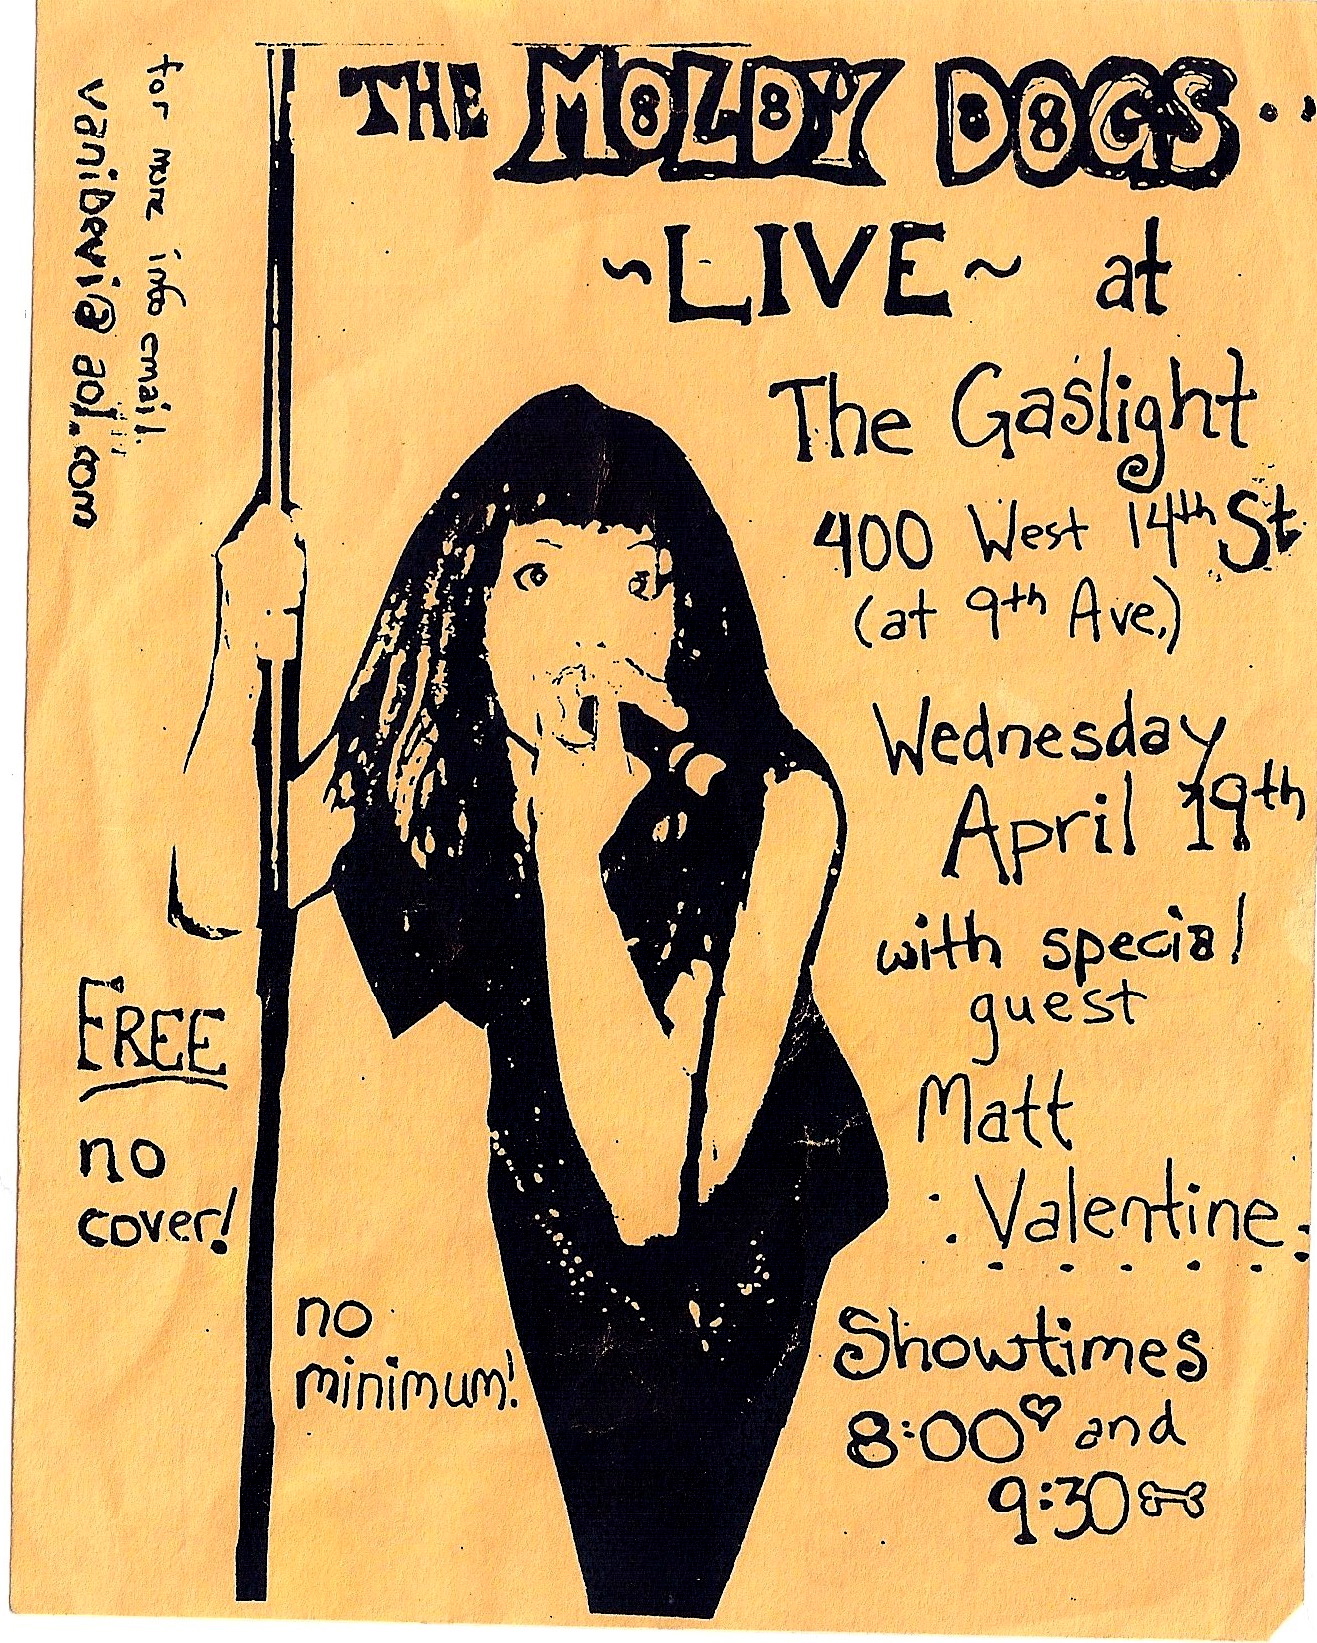 THE MOLDY DOGS..
~LIVE~ at
The Gaslight
400 West 14th St
(at 9th Ave.)
Wednesday
April 19th
with special
guest
Matt
: Valentine :
Showtimes
8:00♡ and
9:30
for more info email:
vanidevi@aol.com
FREE
no
cover!
no
minimum!